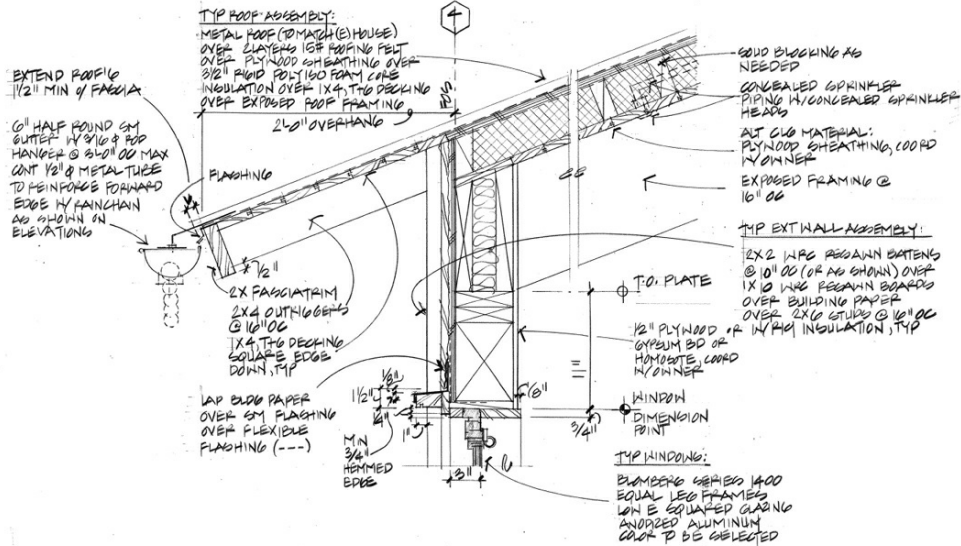 4
TYP ROOF ASSEMBLY:
METAL ROOF (TO MATCH (E) HOUSE)
OVER 2 LAYERS 15# ROOFING FELT
OVER PLYWOOD SHEATHING OVER
3 1/2" RIGID POLYISO FOAM CORE
INSULATION OVER 1X4, T&G DECKING
OVER EXPOSED ROOF FRAMING
2'-0" OVERHANG
F.O.S.
EXTEND ROOF'G
1 1/2" MIN @ FASCIA
6" HALF ROUND SM
GUTTER W/ 3/16 Φ ROD
HANGER @ 3'-0" OC MAX
CONT 1/2" Φ METAL TUBE
TO REINFORCE FORWARD
EDGE W/ RAINCHAIN
AS SHOWN ON
ELEVATIONS
FLASHING
1/2"
2X FASCIA TRIM
2X4 OUTRIGGERS
@ 16" OC
1X4, T&G DECKING
SQUARE EDGE
DOWN, TYP
LAP BLDG PAPER
OVER SM FLASHING
OVER FLEXIBLE
FLASHING (---)
1/8"
1 1/2"
1/4"
1"
MIN
3/4"
HEMMED
EDGE
3"
SOLID BLOCKING AS
NEEDED
CONCEALED SPRINKLER
PIPING W/ CONCEALED SPRINKLER
HEADS
ALT CLG MATERIAL:
PLYWOOD SHEATHING, COORD
W/ OWNER
EXPOSED FRAMING @
16" OC
TYP EXT WALL ASSEMBLY:
2X2 WRC RESAWN BATTENS
@ 10" OC (OR AS SHOWN) OVER
1X10 WRC RESAWN BOARDS
OVER BUILDING PAPER
OVER 2X6 STUDS @ 16" OC
W/ R19 INSULATION, TYP
T.O. PLATE
1/2" PLYWOOD OR
GYPSUM BD OR
HOMOSOTE, COORD
W/ OWNER
=
1/8"
3/4"
WINDOW
DIMENSION
POINT
TYP WINDOWS:
BLOMBERG SERIES 1400
EQUAL LEG FRAMES
LOW E SQUARED GLAZING
ANODIZED ALUMINUM
COLOR TO BE SELECTED